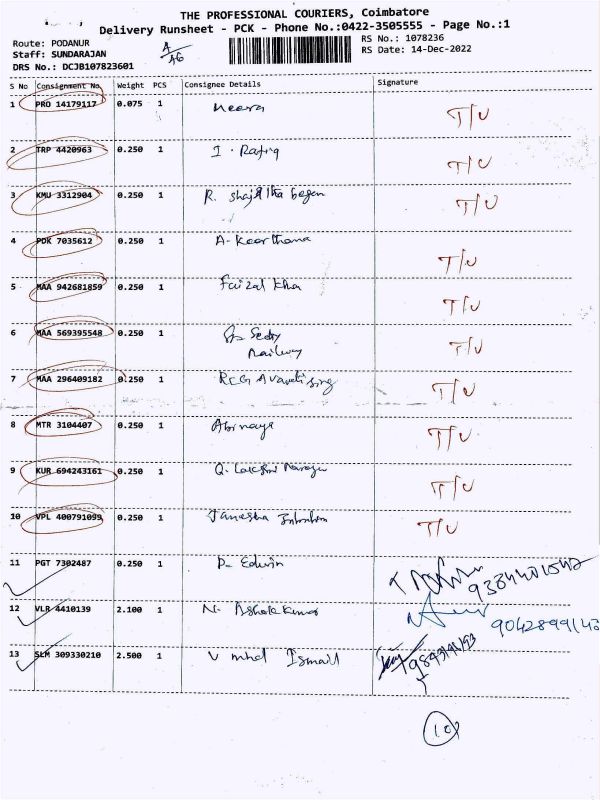 THE PROFESSIONAL COURIERS, Coimbatore
Delivery Runsheet - PCK - Phone No.:0422-3505555 - Page No.:1
Route: PODANUR
Staff: SUNDARAJAN
DRS No.: DCJB107823601
A/46
RS No.: 1078236
RS Date: 14-Dec-2022
S No Consignment No. Weight PCS Consignee Details Signature
1 PRO 14179117 0.075 1 Meera T/U
2 TRP 4420963 0.250 1 I. Rafiq T/U
3 KMU 3312904 0.250 1 R. begam T/U
4 PDK 7035612 0.250 1 A. Keerthana T/U
5 MAA 942681859 0.250 1 Faizal Kha T/U
6 MAA 569395548 0.250 1 T/U
Railway
7 MAA 296409182 0.250 1 T/U
8 MTR 3104407 0.250 1 Abinaya T/U
9 KUR 694243161 0.250 1 T/U
10 VPL 400791099 0.250 1 T/U
11 PGT 7302487 0.250 1 Edwin
12 VLR 4410139 2.100 1 N. Ashok Kumar
9042899143
13 SLM 309330210 2.500 1 V mhd Ismail
10